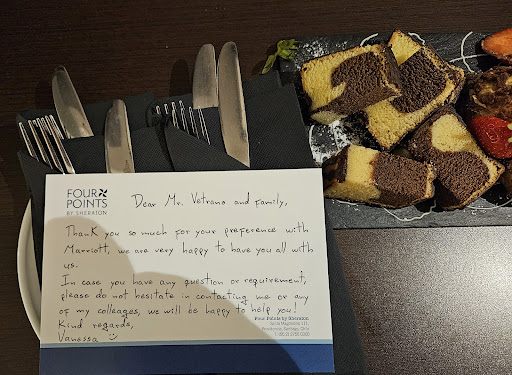 FOUR
POINTS
BY SHERATON
Dear Mr. Vetrano and family,
Thank you so much for your preference with
Marriott, we are very happy to have you all with
us.
In case you have any question or requirement,
please do not hesitate in contacting me or any
of my colleges, we will be happy to help you!
Kind regards,
Vanessa
Four Points by Sheraton
Santa Magdalena 111,
Providencia, Santiago, Chile